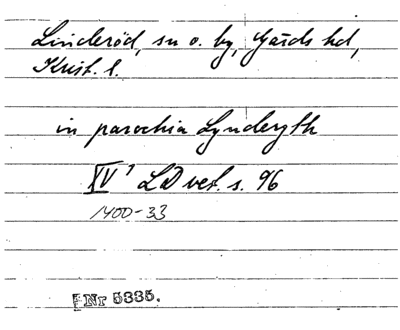 Linderöd, sn o. by, Gärds hd,
Krist. l.
in parochia Lynderyth
XV¹ LD vet. s. 96
1400-33
Nr 5335.